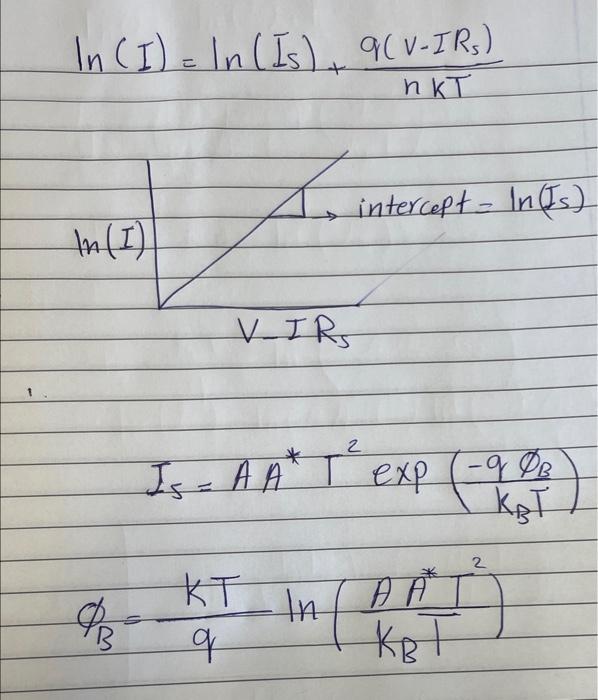 ln(I) = ln(Is) + q(V-IRs)/nKT
→ intercept = ln(Is)
ln(I)
V-IRs
1.
Is = AA* T² exp(-qØB/KBT)
ØB = KT/q ln(AA*T²/KBT)